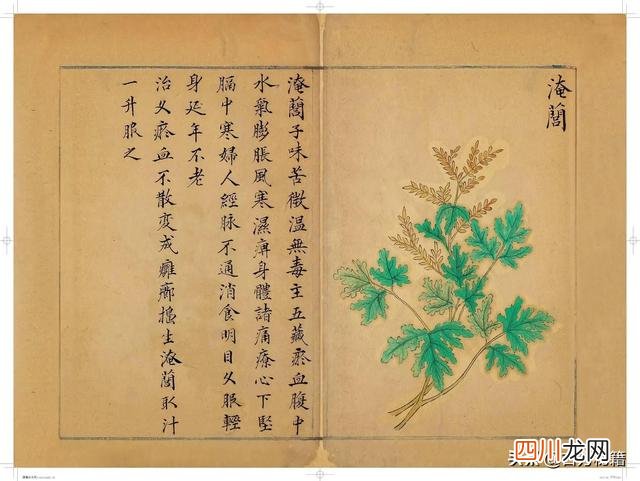 淹䕡
淹䕡子味苦微温無毒主五藏瘀血腹中
水氣膨脹風寒濕痹身體諸痛療心下堅
膈中寒婦人經脉不通消食明目久服輕
身延年不老
治久瘀血不散变成癰癤擣生淹䕡取汁
一升服之
四川龙网
头条